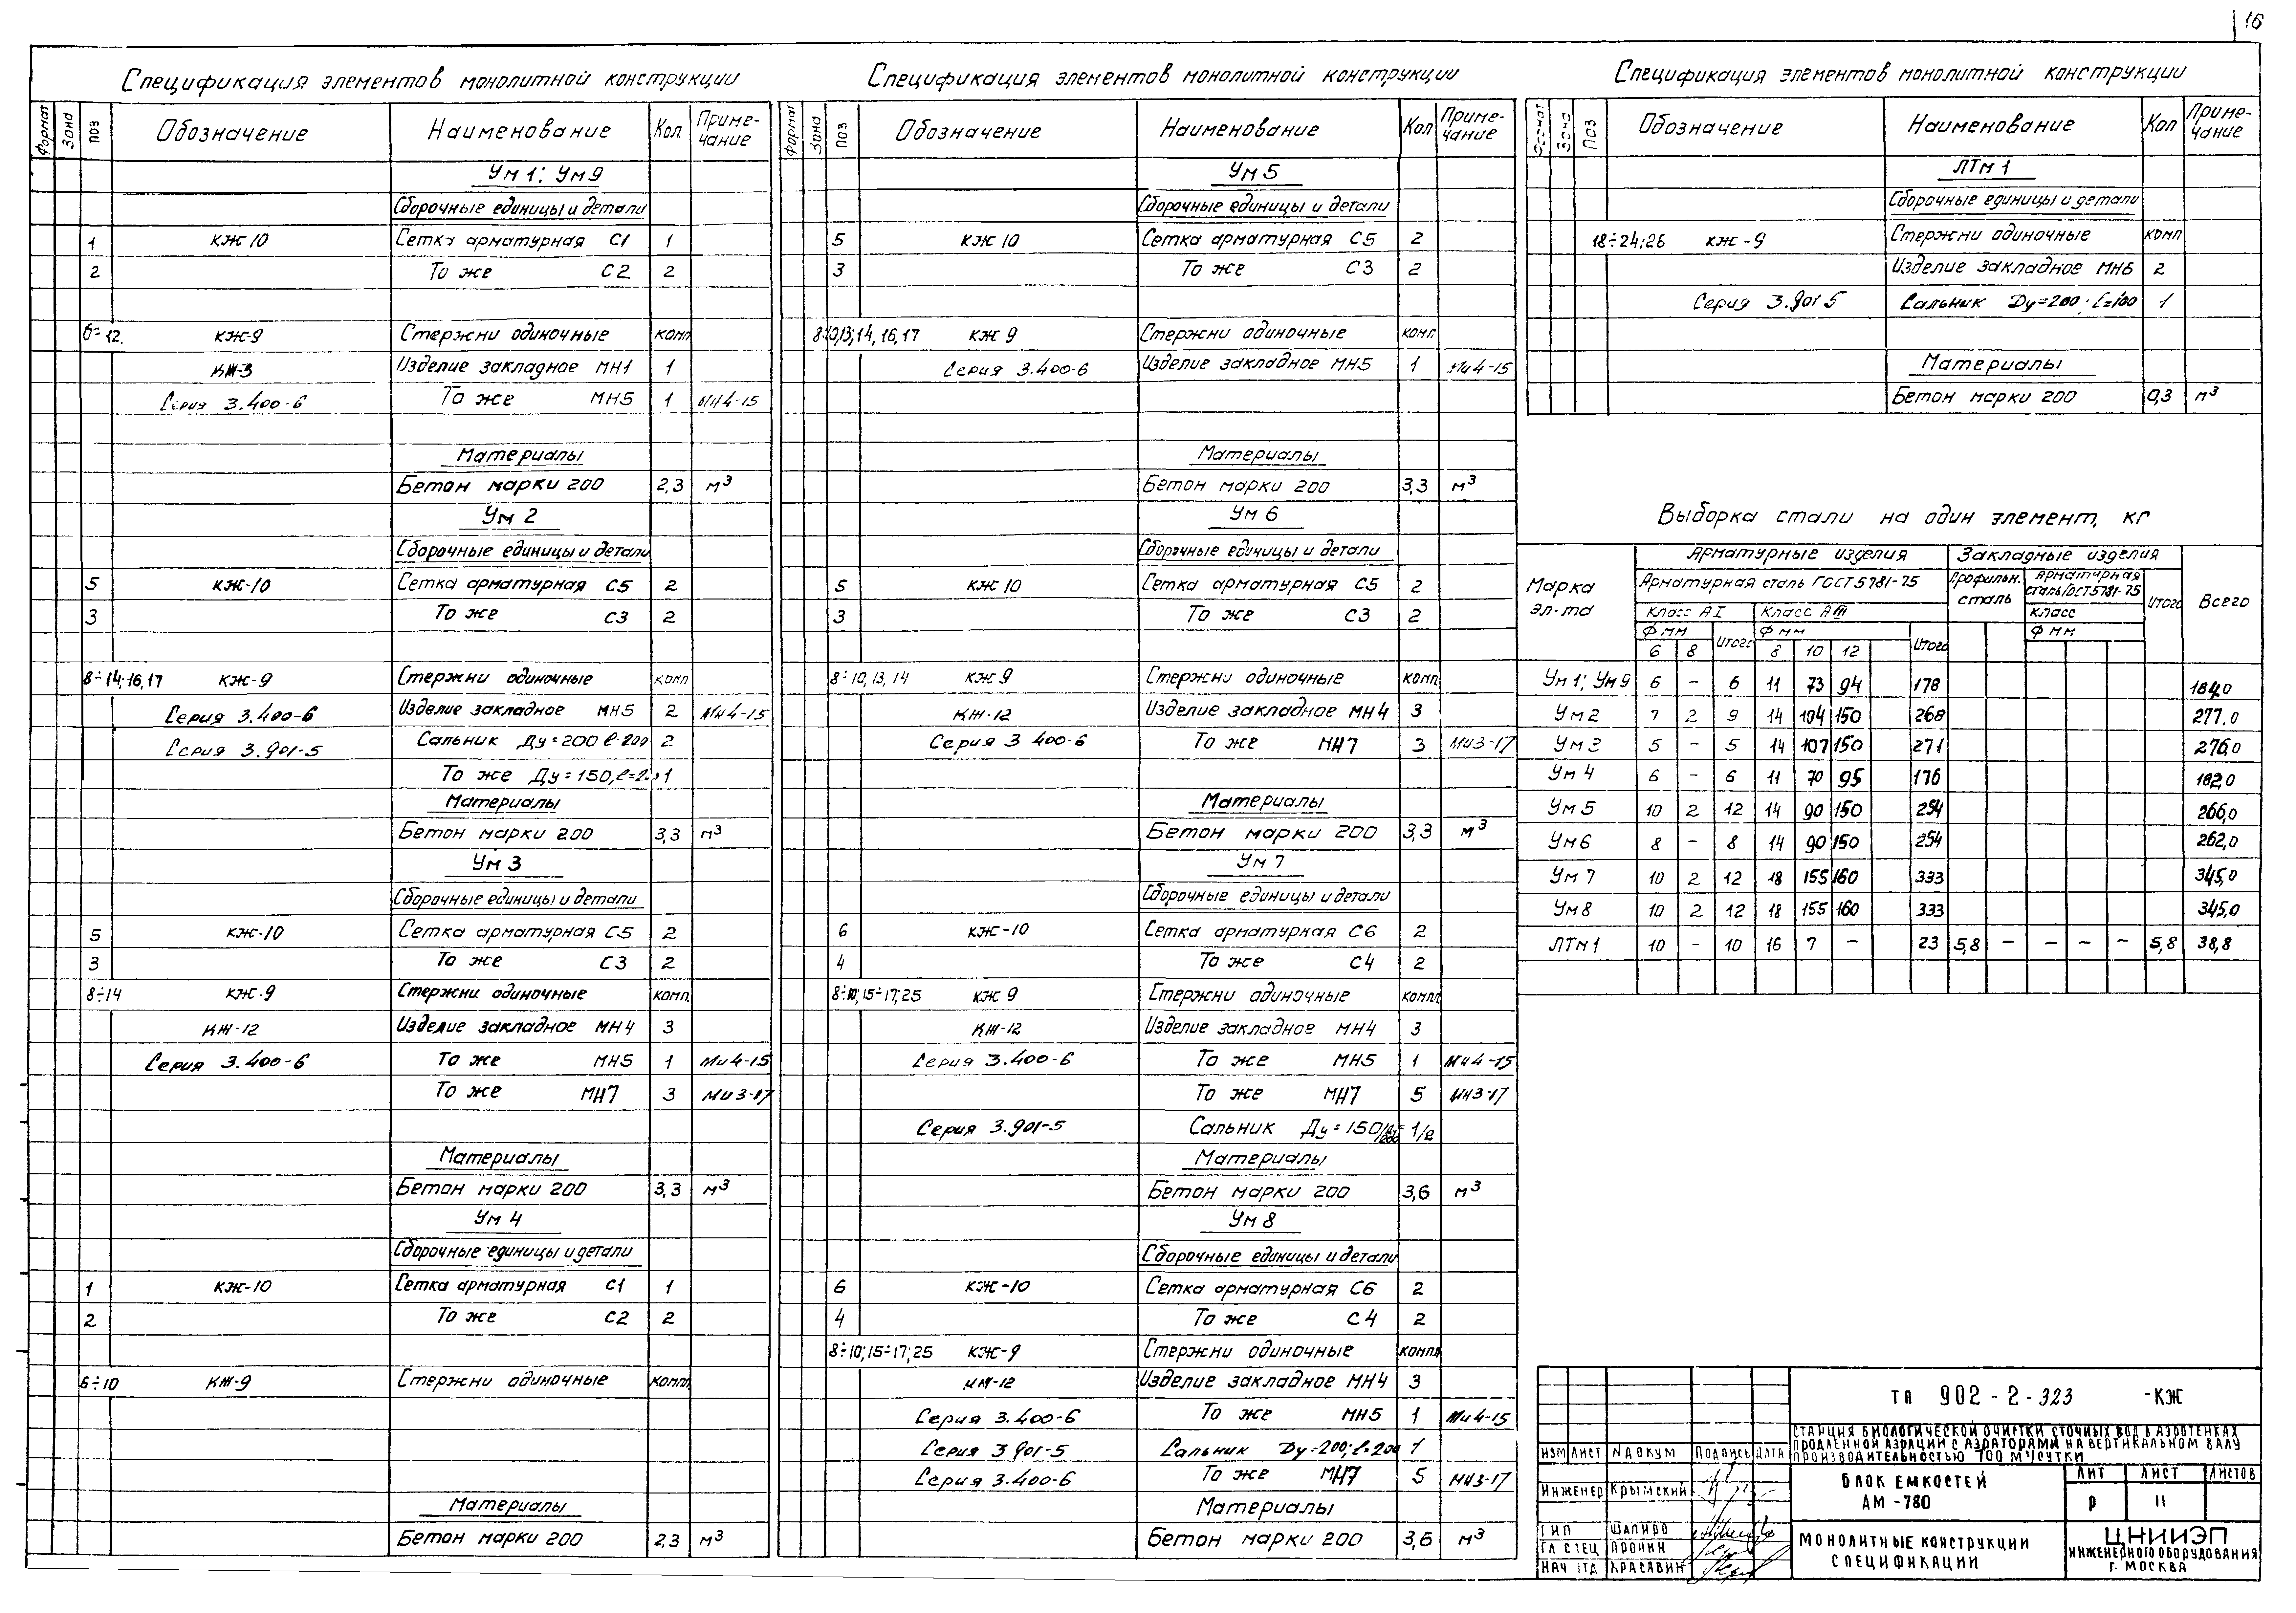 16
Спецификация элементов монолитной конструкции
Формат Зона Поз Обозначение Наименование Кол. Приме-
чание
Ум 1; Ум 9
Сборочные единицы и детали
1 КЖ 10 Сетка арматурная С1 1
2 То же С2 2
6÷12. КЖ-9 Стержни одиночные комп
КЖ-3 Изделие закладное МН1 1
Серия 3.400-6 То же МН5 1 МИ4-15
Материалы
Бетон марки 200 2,3 м³
Ум 2
Сборочные единицы и детали
5 КЖ-10 Сетка арматурная С5 2
3 То же С3 2
8÷14; 16, 17 КЖ-9 Стержни одиночные комп
Серия 3.400-6 Изделие закладное МН5 2 МИ4-15
Серия 3.901-5 Сальник Ду=200 ℓ=200 2
То же Ду=150, ℓ=2 1
Материалы
Бетон марки 200 3,3 м³
Ум 3
Сборочные единицы и детали
5 КЖ-10 Сетка арматурная С5 2
3 То же С3 2
8÷14 КЖ-9 Стержни одиночные комп.
КЖ-12 Изделие закладное МН4 3
Серия 3.400-6 То же МН5 1 МИ4-15
То же МН7 3 МИ3-17
Материалы
Бетон марки 200 3,3 м³
Ум 4
Сборочные единицы и детали
1 КЖ-10 Сетка арматурная С1 1
2 То же С2 2
6÷10 КЖ-9 Стержни одиночные компл.
Материалы
Бетон марки 200 2,3 м³
Спецификация элементов монолитной конструкции
Формат Зона Поз Обозначение Наименование Кол Приме-
чание
Ум 5
Сборочные единицы и детали
5 КЖ 10 Сетка арматурная С5 2
3 То же С3 2
8÷10,13;14, 16, 17 КЖ 9 Стержни одиночные комп.
Серия 3.400-6 Изделие закладное МН5 1 МИ4-15
Материалы
Бетон марки 200 3,3 м³
Ум 6
Сборочные единицы и детали
5 КЖ 10 Сетка арматурная С5 2
3 То же С3 2
8÷10, 13, 14 КЖ 9 Стержни одиночные комп
КЖ-12 Изделие закладное МН4 3
Серия 3 400-6 То же МН7 3 МИ3-17
Материалы
Бетон марки 200 3,3 м³
Ум 7
Сборочные единицы и детали
6 КЖ-10 Сетка арматурная С6 2
4 То же С4 2
8÷10; 15÷17; 25 КЖ 9 Стержни одиночные компл
КЖ-12 Изделие закладное МН4 3
Серия 3.400-6 То же МН5 1 МИ4-15
То же МН7 5 МИ3-17
Серия 3.901-5 Сальник Ду=150/200 1/2
Материалы
Бетон марки 200 3,6 м³
Ум 8
Сборочные единицы и детали
6 КЖ-10 Сетка арматурная С6 2
4 То же С4 2
8÷10; 15÷17; 25 КЖ-9 Стержни одиночные компл
КЖ-12 Изделие закладное МН4 3
Серия 3.400-6 То же МН5 1 МИ4-15
Серия 3 901-5 Сальник Ду=200; ℓ=200 1
Серия 3.400-6 То же МН7 5 МИ3-17
Материалы
Бетон марки 200 3,6 м³
Спецификация элементов монолитной конструкции
Формат Зона Поз Обозначение Наименование Кол Приме-
чание
ЛТм 1
Сборочные единицы и детали
18÷24; 26 КЖ-9 Стержни одиночные комп
Изделие закладное МН6 2
Серия 3.901 5 Сальник Ду=200; ℓ=100 1
Материалы
Бетон марки 200 0,3 м³
Выборка стали на один элемент, кг
Марка
эл-та
Арматурные изделия Закладные изделия Всего
Арматурная сталь ГОСТ 5781-75 Профильн.
сталь Арматурная
сталь ГОСТ 5781-75 Итого
Класс АI Класс АIII Класс
Ф мм Итого Ф мм Итого Ф мм
6 8 8 10 12
Ум 1; Ум 9 6 - 6 11 73 94 178 184,0
Ум 2 7 2 9 14 104 150 268 277,0
Ум 3 5 - 5 14 107 150 271 276,0
Ум 4 6 - 6 11 70 95 176 182,0
Ум 5 10 2 12 14 90 150 254 266,0
Ум 6 8 - 8 14 90 150 254 262,0
Ум 7 10 2 12 18 155 160 333 345,0
Ум 8 10 2 12 18 155 160 333 345,0
ЛТм 1 10 - 10 16 7 - 23 5,8 - - - - 5,8 38,8
ТП 902-2-323 -КЖ
СТАНЦИЯ БИОЛОГИЧЕСКОЙ ОЧИСТКИ СТОЧНЫХ ВОД В АЭРОТЕНКАХ
ПРОДЛЕННОЙ АЭРАЦИИ С АЭРАТОРАМИ НА ВЕРТИКАЛЬНОМ ВАЛУ
ПРОИЗВОДИТЕЛЬНОСТЬЮ 700 М³/СУТКИ
ИЗМ ЛИСТ N ДОКУМ ПОДПИСЬ ДАТА
ИНЖЕНЕР КРЫМСКИЙ
ГИП ШАПИРО
ГЛ СПЕЦ ПРОНИН
НАЧ ОТД КРАСАВИН
БЛОК ЕМКОСТЕЙ
АМ-780
ЛИТ ЛИСТ ЛИСТОВ
Р 11
МОНОЛИТНЫЕ КОНСТРУКЦИИ
СПЕЦИФИКАЦИИ
ЦНИИЭП
ИНЖЕНЕРНОГО ОБОРУДОВАНИЯ
Г. МОСКВА